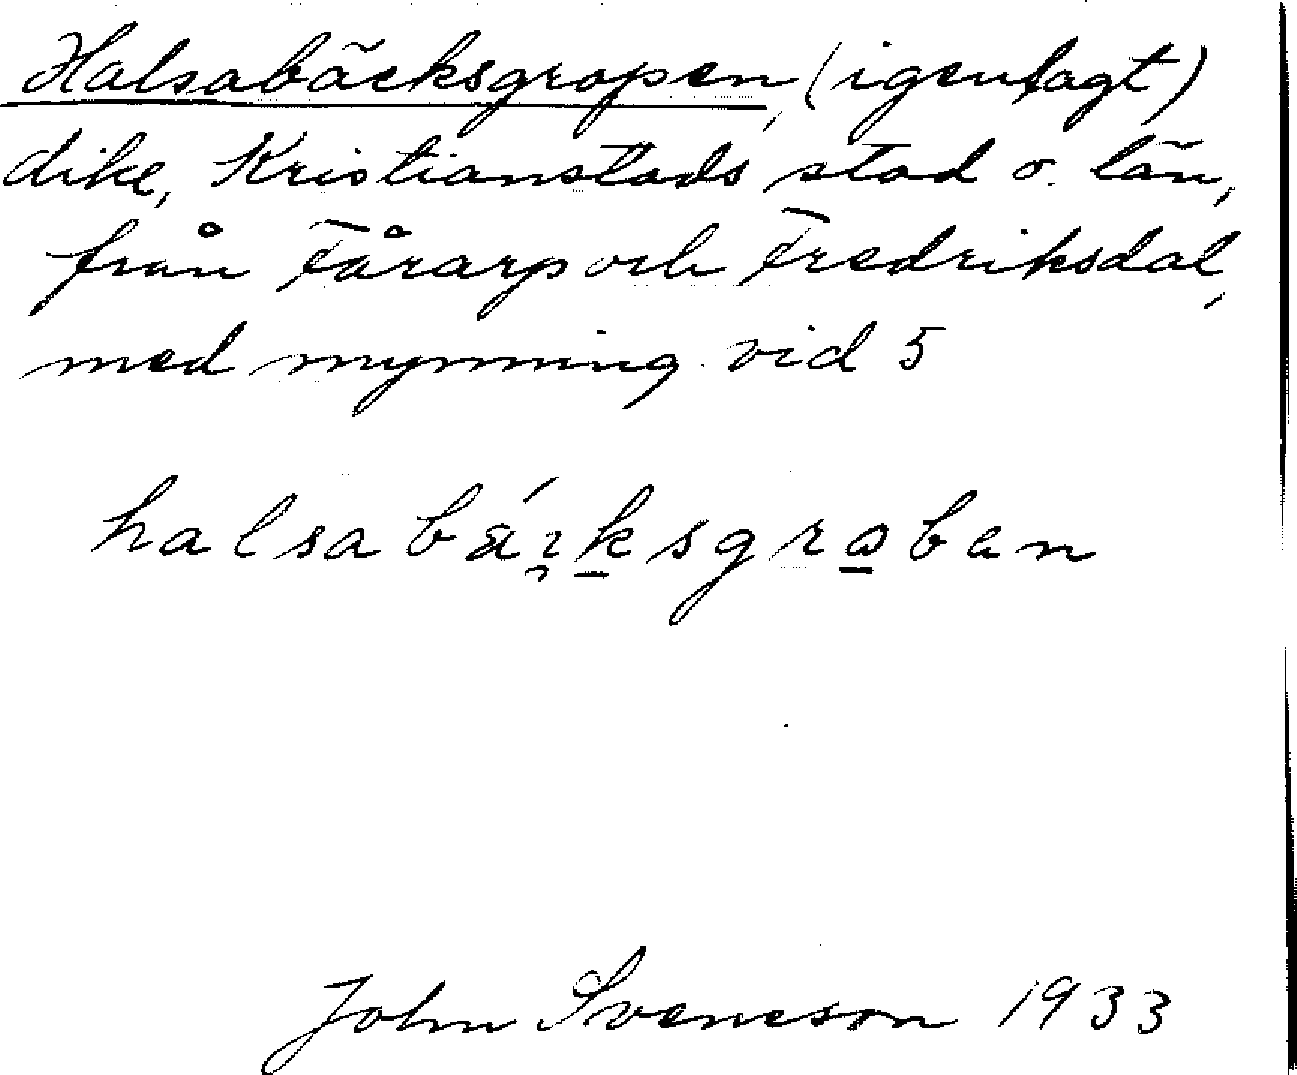 Halsabäcksgropen, (igenlagt)
dike, Kristianstads stad o. län,
från Fårarp och Fredriksdal,
med mynning vid 5
John Sveneson 1933